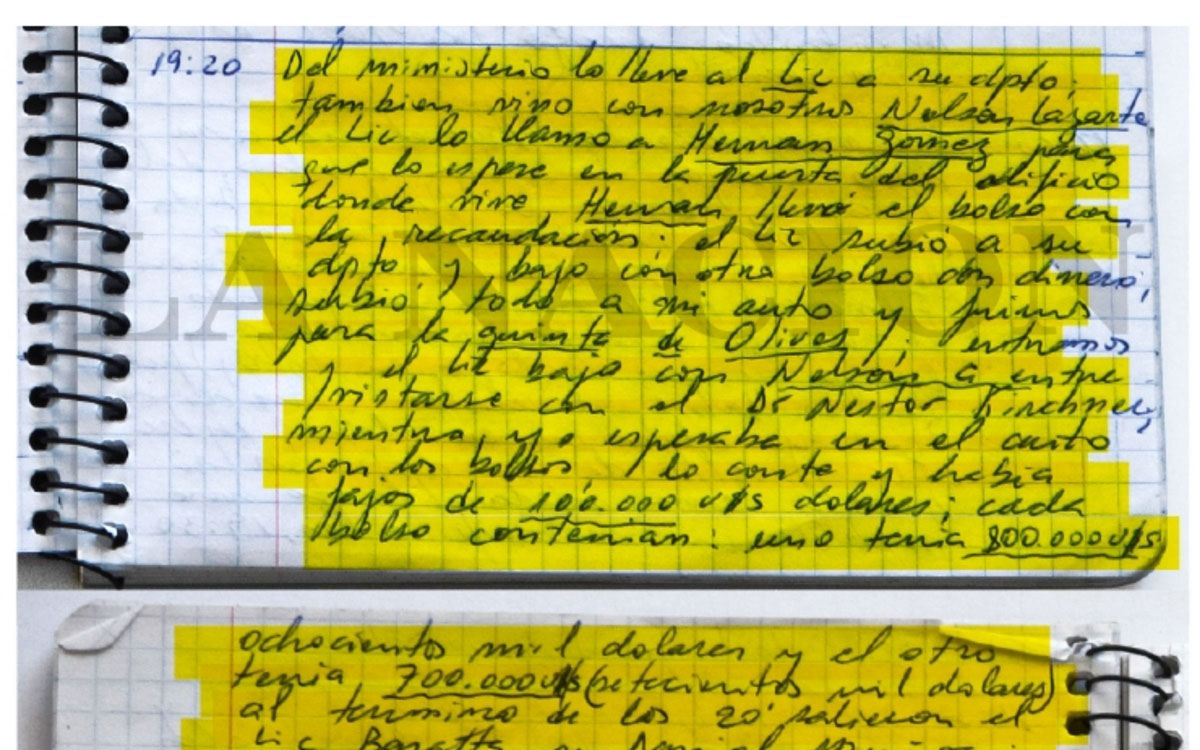 19:20 Del mimisterio lo lleve al Lic a su dpto;
tambien vino con nosotros Nelson Lazarte
el Lic lo llamo a Hernan Gomez para
que lo espere en la puerta del edificio
donde vive Hernan llevó el bolso con
la recaudación. el Lic subió a su
dpto y bajo con otro bolso con dinero,
subio todo a mi auto y fuimos
para la quinta de Olivos; entramos
y el Lic bajo con Nelson a entre
/vistarse con el Dr Nestor Kirchner,
mientras yo esperaba en el auto
con los bolsos, lo conte y habia
fajos de 100.000 U$S dolares; cada
bolso contenian: uno tenia 800.000 U$S
ochocientos mil dolares y el otro
tenia 700.000 U$S (setecientos mil dolares)
al termino de los 20' salieron el
Lic Baratta y Daniel
LA NACION